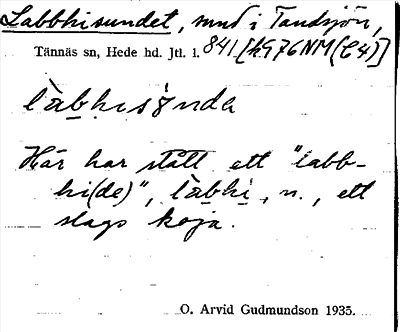 Labbhisundet, sund i Tandsjön,
Tännäs sn, Hede hd. Jtl. i. 841 [k976NM(C4)]
làb̲hisúnda
Här har stått ett "labb-
hi(de)", làb̲hi̲, n., ett
slags koja.
O. Arvid Gudmundson 1935.